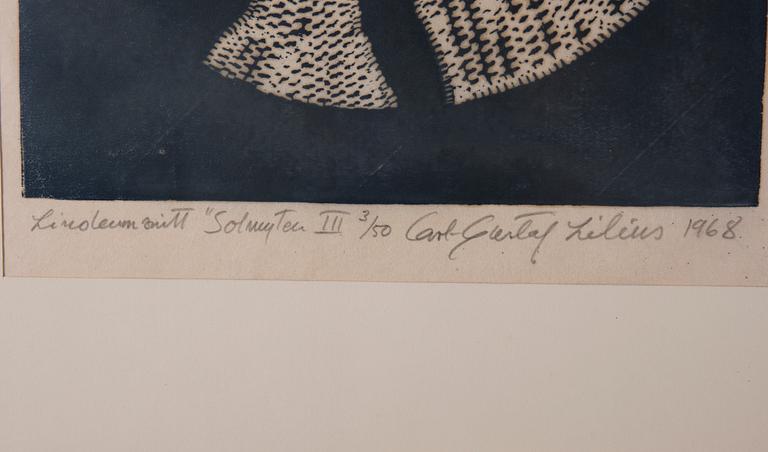 Linoleumsnitt "Solmyten III 3/50 Carl-Gustaf Lilius 1968